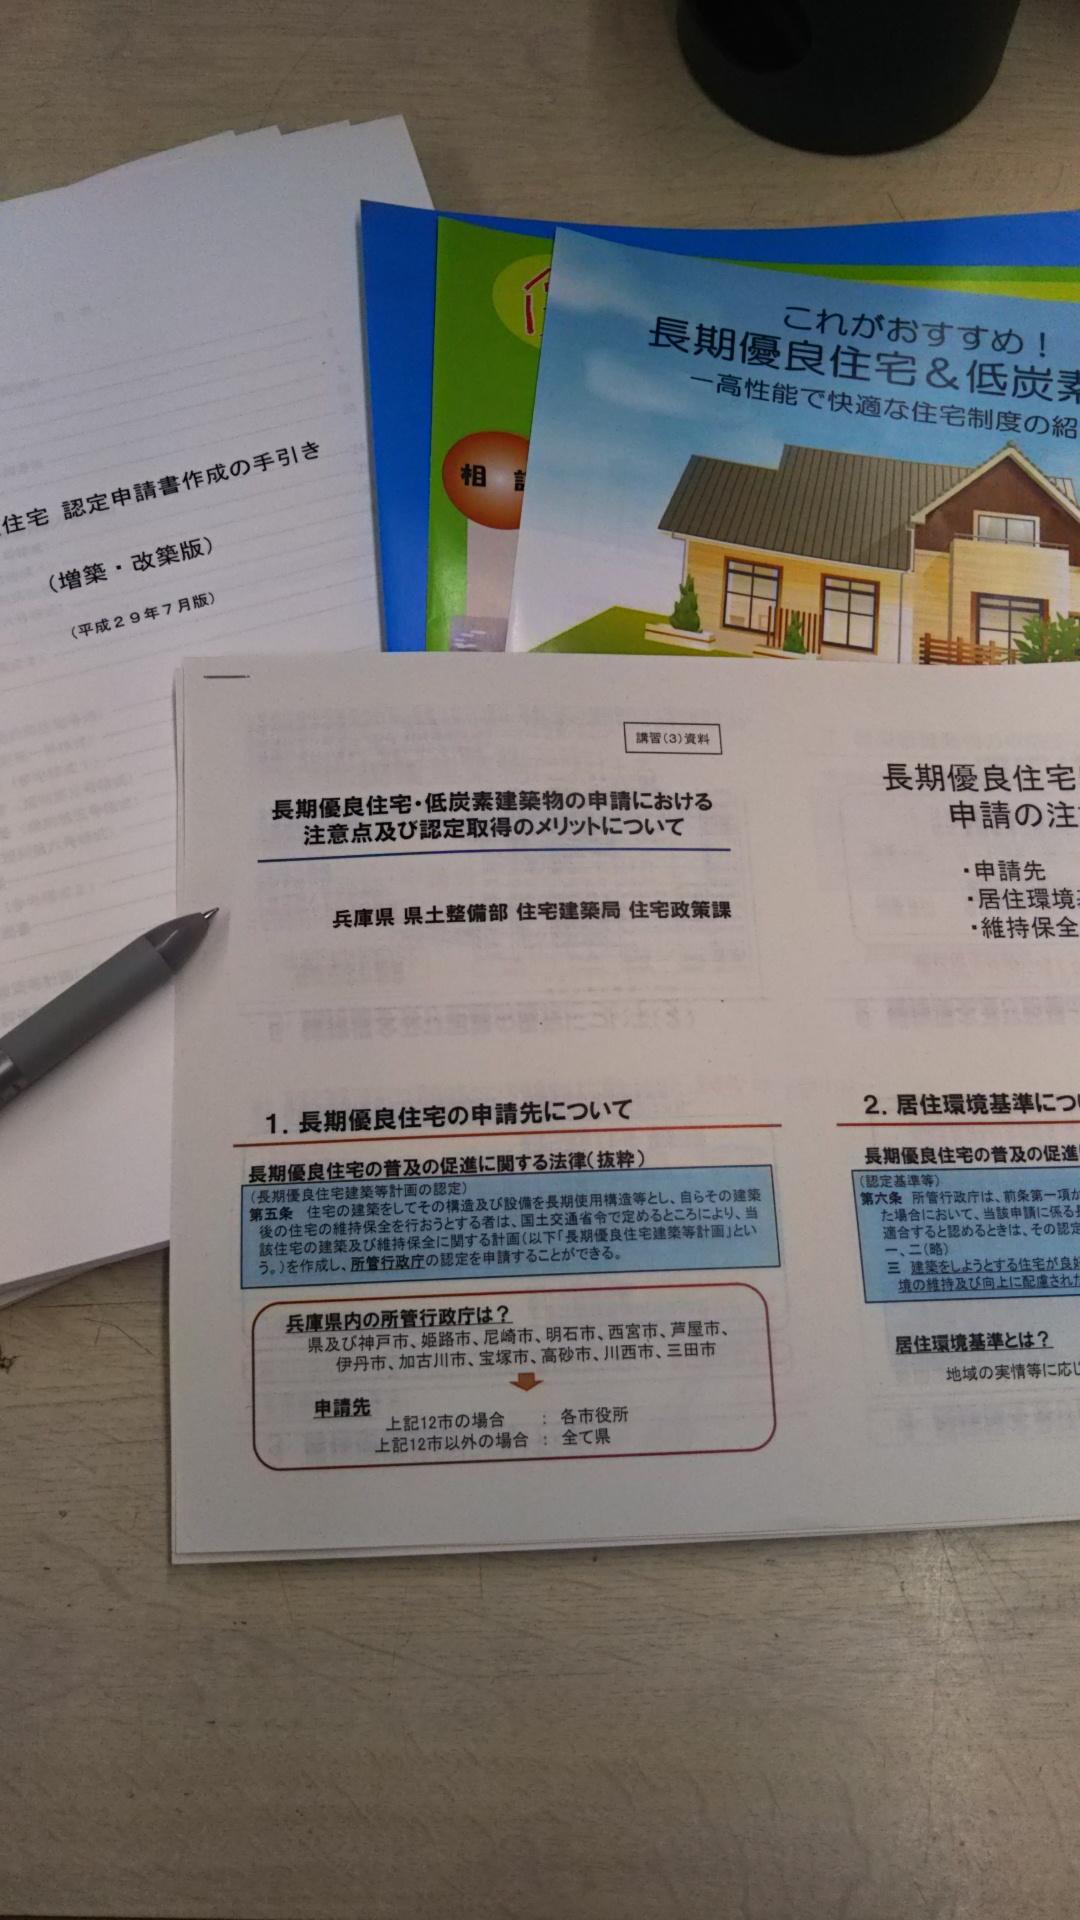 住宅 認定申請書作成の手引き
(増築・改築版)
(平成29年7月版)
相
これがおすすめ!
長期優良住宅&低炭素
ー高性能で快適な住宅制度の紹
講習(3)資料
長期優良住宅・低炭素建築物の申請における
注意点及び認定取得のメリットについて
兵庫県 県土整備部 住宅建築局 住宅政策課
長期優良住宅
申請の注
・申請先
・居住環境
・維持保全
1. 長期優良住宅の申請先について
長期優良住宅の普及の促進に関する法律(抜粋)
(長期優良住宅建築等計画の認定)
第五条 住宅の建築をしてその構造及び設備を長期使用構造等とし、自らその建築
後の住宅の維持保全を行おうとする者は、国土交通省令で定めるところにより、当
該住宅の建築及び維持保全に関する計画(以下「長期優良住宅建築等計画」とい
う。)を作成し、所管行政庁の認定を申請することができる。
兵庫県内の所管行政庁は?
県及び神戸市、姫路市、尼崎市、明石市、西宮市、芦屋市、
伊丹市、加古川市、宝塚市、高砂市、川西市、三田市
申請先
上記12市の場合 : 各市役所
上記12市以外の場合 : 全て県
2. 居住環境基準につ
長期優良住宅の普及の促進
(認定基準等)
第六条 所管行政庁は、前条第一項
た場合において、当該申請に係る
適合すると認めるときは、その認定
一、二(略)
三 建築をしようとする住宅が良好
境の維持及び向上に配慮された
居住環境基準とは?
地域の実情等に応じ